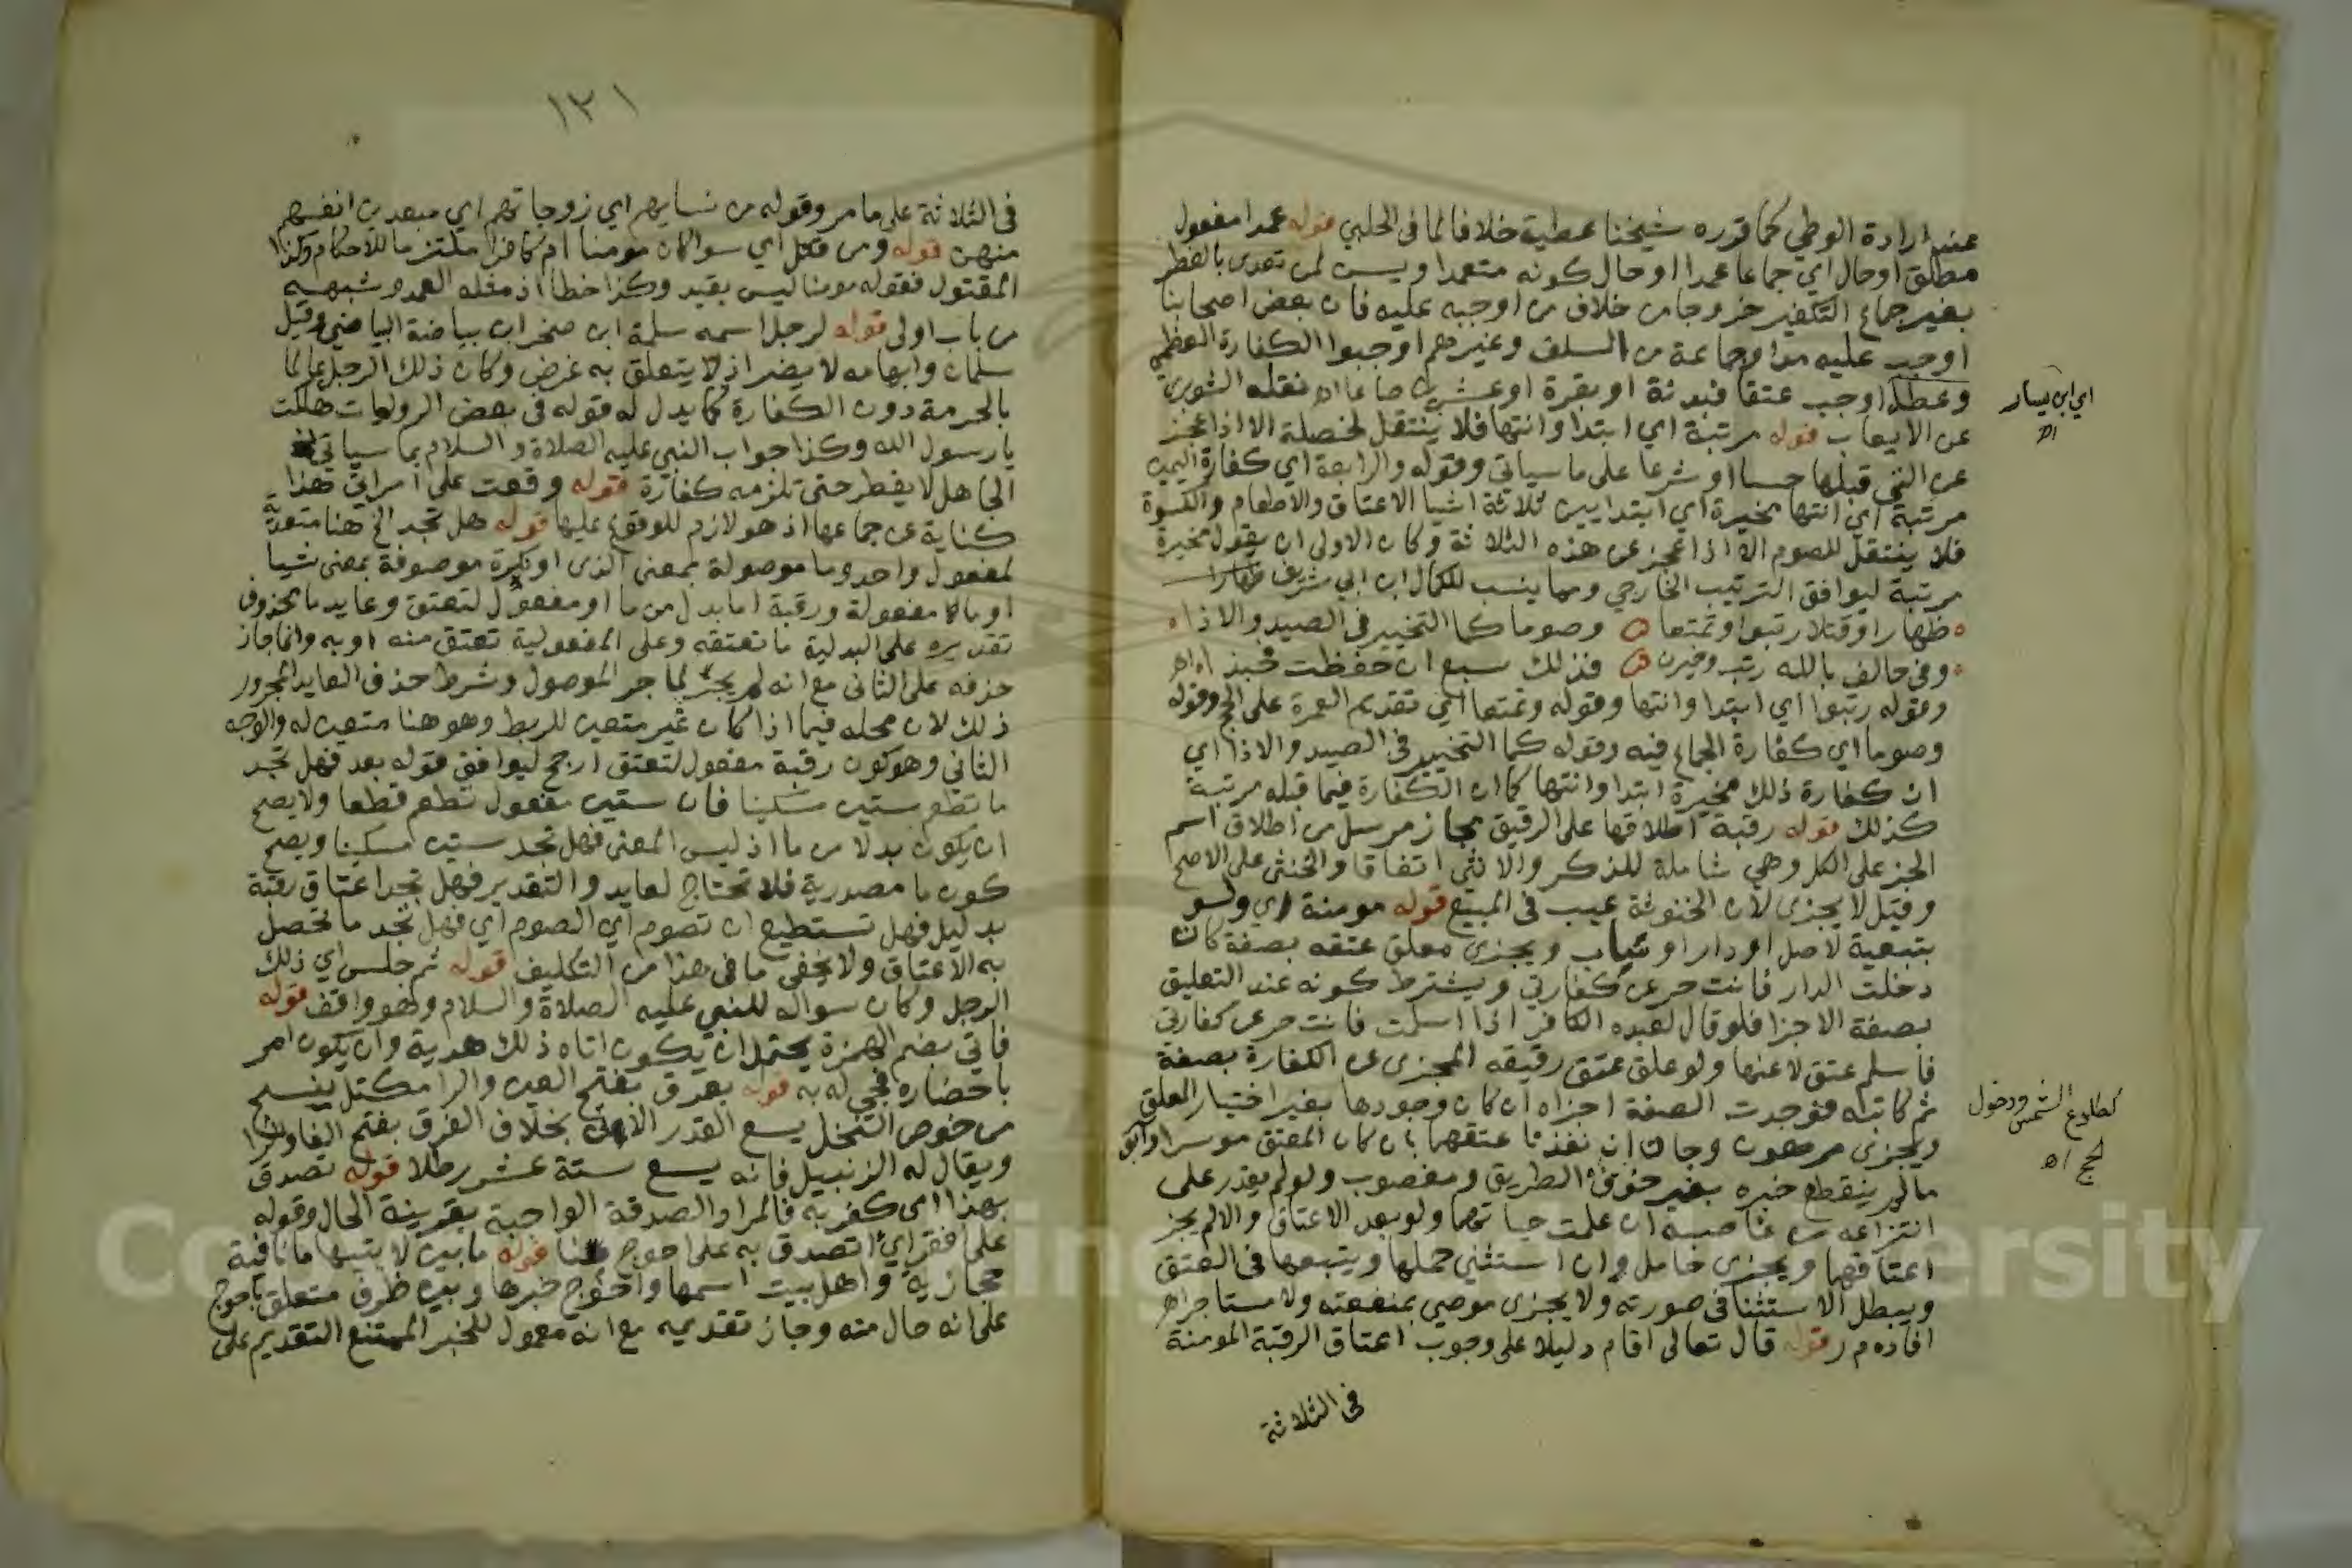 عند ارادة الوطي كما قرره شيخنا عطية خلافا لما في الحلبي قوله عمدا مفعول
مطلق او حال اي جماعا عمدا او حال كونه متعمدا ويسن لمن تعدى بالفطر
بغير جماع التكفير خروجا من خلاف من اوجبه عليه فان بعض اصحابنا
اوجب عليه مدا وجماعة من السلف وغيرهم اوجبوا الكفارة العظمي
وعطا اوجب عتقا فبدنة او بقرة او عشرين صاعا اه نقله الشوبري
عن الايعاب قوله مرتبة اي ابتدا وانتها فلا ينتقل لخصلة الا اذا عجز
عن التي قبلها حسا او شرعا على ما سياتي وقوله والرابعة اي كفارة اليمين
مرتبة اي انتها مخيرة اي ابتدا بين ثلاثة اشيا الاعتاق والاطعام والكسوة
فلا ينتقل للصوم الا اذا عجز عن هذه الثلاثة وكان الاولى ان يقول مخيرة
مرتبة ليوافق الترتيب الخارجي ومما ينسب للكمال ابن ابي شريف ظهارا
ظهارا وقتلا رتبوا وتمتعا وصوما كما التخيير في الصيد والاذا
وفي حالف بالله رتب وخيرن فذلك سبع ان حفظت فحبذا اه
وقوله رتبوا اي ابتدا وانتها وقوله وتمتعا اي تقديم العمرة على الحج وقوله
وصوما اي كفارة الجماع فيه وقوله كما التخيير في الصيد والاذا اي
ان كفارة ذلك مخيرة ابتدا وانتها كما ان الكفارة فيما قبله مرتبة
كذلك قوله رقبة اطلاقها على الرقيق مجاز مرسل من اطلاق اسم
الجز على الكل وهي شاملة للذكر والانثى اتفاقا والخنثى على الاصح
وقيل لا يجزى لان الخنوثة عيب في المبيع قوله مومنة اي ولو
بتبعية لاصل او دار او سباب ويجزى معلق عتقه بصفة كان
دخلت الدار فانت حر عن كفارتي ويشترط كونه عند التعليق
بصفة الاجزا فلو قال لعبده الكافر اذا اسلمت فانت حر عن كفارتي
فاسلم عتق لا عنها ولو علق عتق رقيقه المجزى عن الكفارة بصفة
ثم كاتبه فوجدت الصفة اجزاه ان كان وجودها بغير اختيار المعلق
ويجزى مرهون وجان ان نفذنا عتقهما بان كان المعتق موسرا وآبق
مالم ينقطع خبره بغير خوف الطريق ومغصوب ولو لم يقدر على
انتزاعه من غاصبه ان علمت حياتهما ولو بعد الاعتاق والا لم يجز
اعتاقهما ويجزى حامل وان استثنى حملها ويتبعها في العتق
ويبطل الاستثنا في صورته ولا يجزى موصى بمنفعته ولا مستاجر اه
افاده م ر قوله قال تعالى اقام دليلا على وجوب اعتاق الرقبة المومنة
في الثلاثة
اي ابن يسار
اه
كطلوع الشمس ودخول
حج اه
١٣١
في الثلاثة على ما مر وقوله من نسايهم اي زوجاتهم اي مبعدين انفسهم
منهن قوله ومن قتل اي سوا كان مومنا ام كافرا ملتزما للاحكام وكذا
المقتول فقوله مومنا ليس بقيد وكذا خطأ اذ مثله العمد وشبهه
من باب اولى قوله لرجل اسمه سلمة ابن صخر ابن بياضة البياضي وقيل
سلمان وابهامه لا يضر اذ لا يتعلق به غرض وكان ذلك الرجل عالما
بالحرمة دون الكفارة كما يدل له قوله في بعض الروايات هلكت
يا رسول الله وكذا جواب النبي عليه الصلاة والسلام بما سياتي
الجاهل لا يفطر حتى تلزمه كفارة قوله وقعت على امراتي هذا
كناية عن جماعها اذ هو لازم للوقوع عليها قوله هل تجد الخ هنا متعدية
لمفعول واحد وما موصولة بمعنى الذى او نكرة موصوفة بمعنى شيا
او ما مفعولة ورقبة اما بدل من ما او مفعول لتعتق وعايد ما محذوف
تقديره على البدلية ما تعتقه وعلى المفعولية تعتق منه او به وانما جاز
حذفه على الثاني مع انه لم يجر بما جر الموصول وشرط حذف العايد المجرور
ذلك لان محله فيما اذا كان غير متعين للربط وهو هنا متعين له والوجه
الثاني وهو كون رقبة مفعول لتعتق ارجح ليوافق قوله بعد فهل تجد
ما تطعم ستين مسكينا فان ستين مفعول تطعم قطعا ولا يصح
ان يكون بدلا من ما اذ ليس المعنى فهل تجد ستين مسكينا ويصح
كون ما مصدرية فلا تحتاج لعايد والتقدير فهل تجد اعتاق رقبة
بدليل فهل تستطيع ان تصوم اي الصوم اي فهل تجد ما تحصل
به الاعتاق ولا يخفى ما في هذا من التكليف قوله ثم جلس اي ذلك
الرجل وكان سواله للنبي عليه الصلاة والسلام وهو واقف قوله
فاتي بضم الهمزة يحتمل ان يكون اتاه ذلك هدية وان يكون امر
باحضاره فجي له به قوله بعرق بفتح العين والرا مكتل ينسج
من خوص النخل يسع القدر الاتي بخلاف الفرق بفتح الفا والرا
ويقال له الزنبيل فانه يسع ستة عشر رطلا قوله تصدق
بهذا اي كفر به فالمراد الصدقة الواجبة بقرينة الحال وقوله
على افقر اي اتصدق به على احوج منا قوله ما بين لابتيها ما نافية
حجازية واهل بيت اسمها واحوج خبرها وبين ظرف متعلق باحوج
على انه حال منه وجاز تقديمه مع انه معمول للخبر الممتنع التقديم على